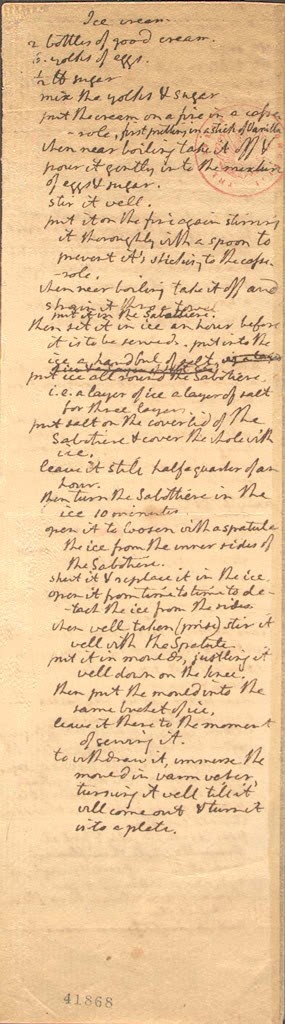 Ice cream.
2 bottles of good cream.
6. yolks of eggs.
½ ℔ sugar
mix the yolks & sugar
put the cream on a fire in a casse-
-role, first putting in a stick of Vanilla.
when near boiling take it off &
pour it gently into the mixture
of eggs & sugar.
stir it well.
put it on the fire again stirring
it thoroughly with a spoon to
prevent it's sticking to the casse-
-role.
when near boiling take it off and
strain it thro' a towel.
put it in the Sabottiere.
then set it in ice an hour before
it is to be served. put into the
ice a handful of salt.
put ice all round the Sabottiere
i.e. a layer of ice a layer of salt
for three layers.
put salt on the coverlid of the
Sabotiere & cover the whole with
ice.
leave it still half a quarter of an
hour.
then turn the Sabottiere in the
ice 10 minutes
open it to loosen with a spatula
the ice from the inner sides of
the Sabotiere.
shut it & replace it in the ice
open it from time to time to de-
-tach the ice from the sides
when well taken (prise) stir it
well with the Spatula.
put it in moulds, justling it
well down on the knee.
then put the mould into the
same bucket of ice.
leave it there to the moment
of serving it.
to withdraw it, immerse the
mould in warm water,
turning it well till it
will come out & turn it
into a plate.
41868